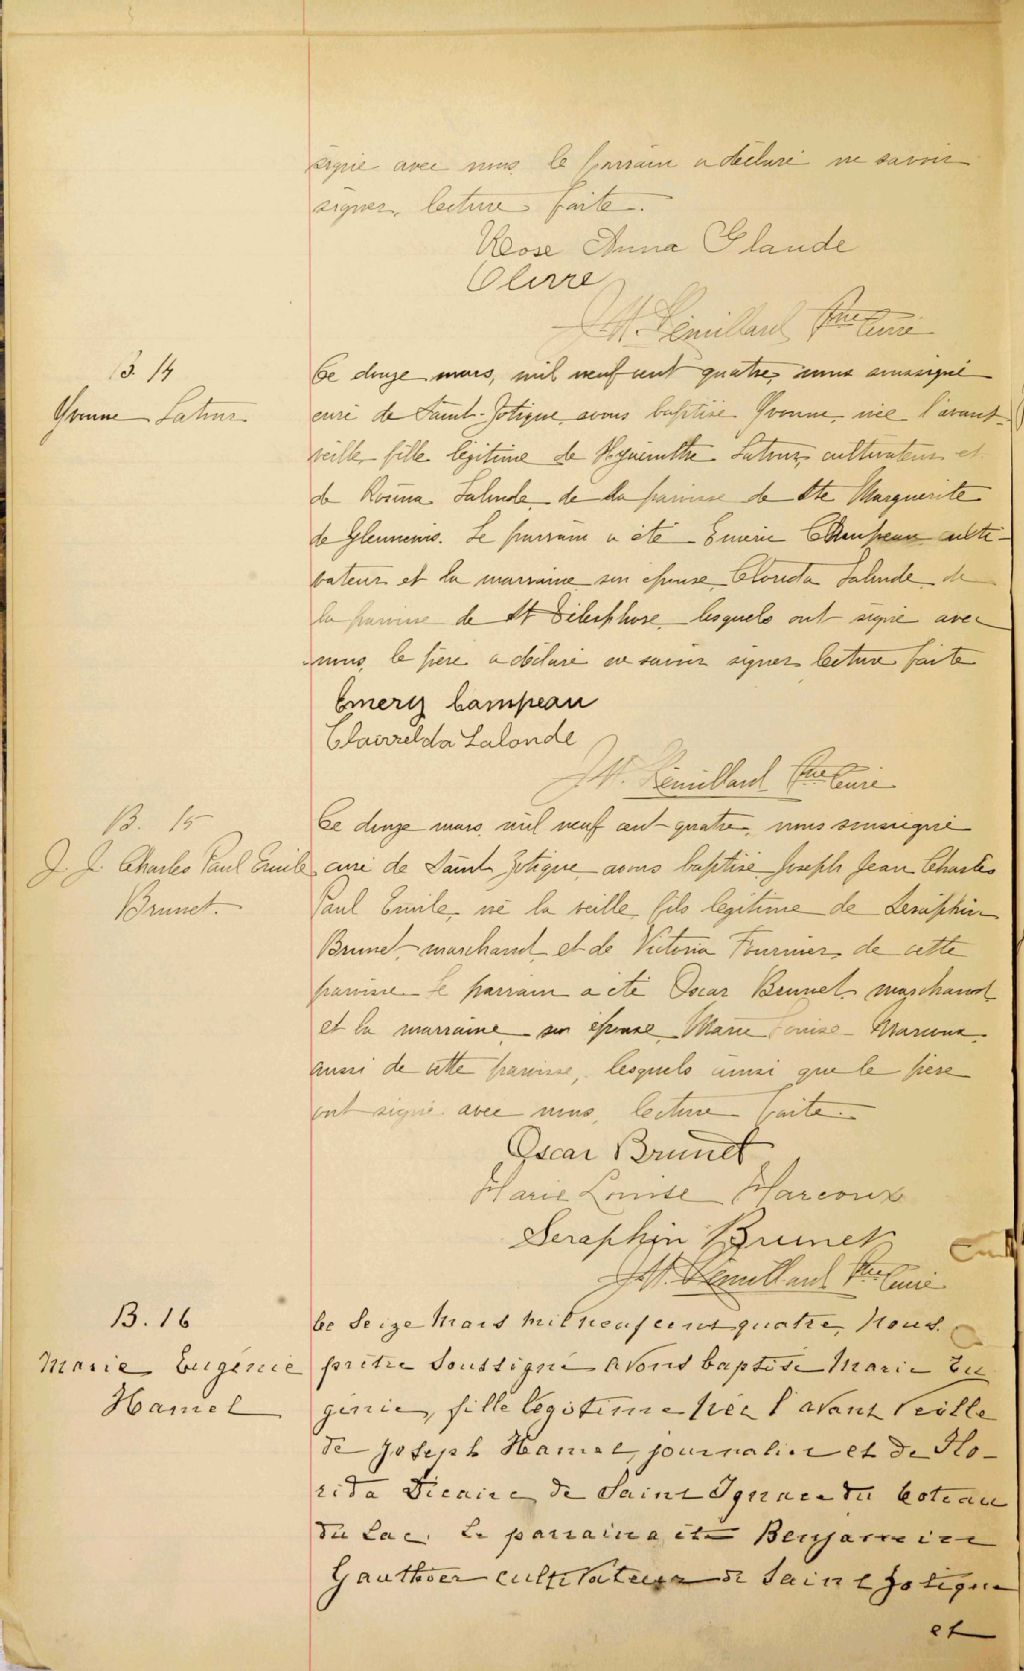 signé avec nous le parrain a déclaré ne savoir
signer, lecture faite.
Rose Anna Glaude
Pierre
Ptre Curé
B. 14
Yvonne Latour
Ce douze mars, mil neuf cent quatre, nous soussigné
curé de Saint-Zotique, avons baptisé Yvonne, née l'avant-
veille, fille légitime de Hyacinthe Latour, cultivateur et
de Rosina Lalonde, de la paroisse de Ste Marguerite
de Le parrain a été Emerie Campeau culti-
vateur et la marraine son épouse, Clorida Lalonde, de
la paroisse de St Télesphore, lesquels ont signé avec
nous, le père a déclaré ne savoir signer, lecture faite
Emery Campeau
Lalonde
J.M. Rémillard Ptre Curé
B. 15
J. J. Charles Paul Emile
Brunet.
Ce douze mars, mil neuf cent quatre, nous soussigné
curé de Saint Zotique, avons baptisé Joseph Jean Charles
Paul Emile, né la veille, fils légitime de Seraphin
Brunet, marchand et de Victoria Fournier, de cette
paroisse. Le parrain a été Oscar Brunet, marchand
et la marraine son épouse, Marie Louise Marcoux,
aussi de cette paroisse, lesquels ainsi que le père
ont signé avec nous, lecture faite.
Oscar Brunet
Marie Louise Marcoux
Seraphin Brunet
J.M. Rémillard Ptre Curé
B. 16
Marie Eugénie
Hamel
Ce seize Mars mil neuf cent quatre, Nous
prêtre soussigné avons baptisé Marie Eu
génie, fille légitime née l'avant veille
de Joseph Hamel, journalier et de Flo-
rida Dicaire, de Saint Ignace du Coteau
du Lac. Le parrain a été Benjamin
Gauthier cultivateur de Saint Zotique
et